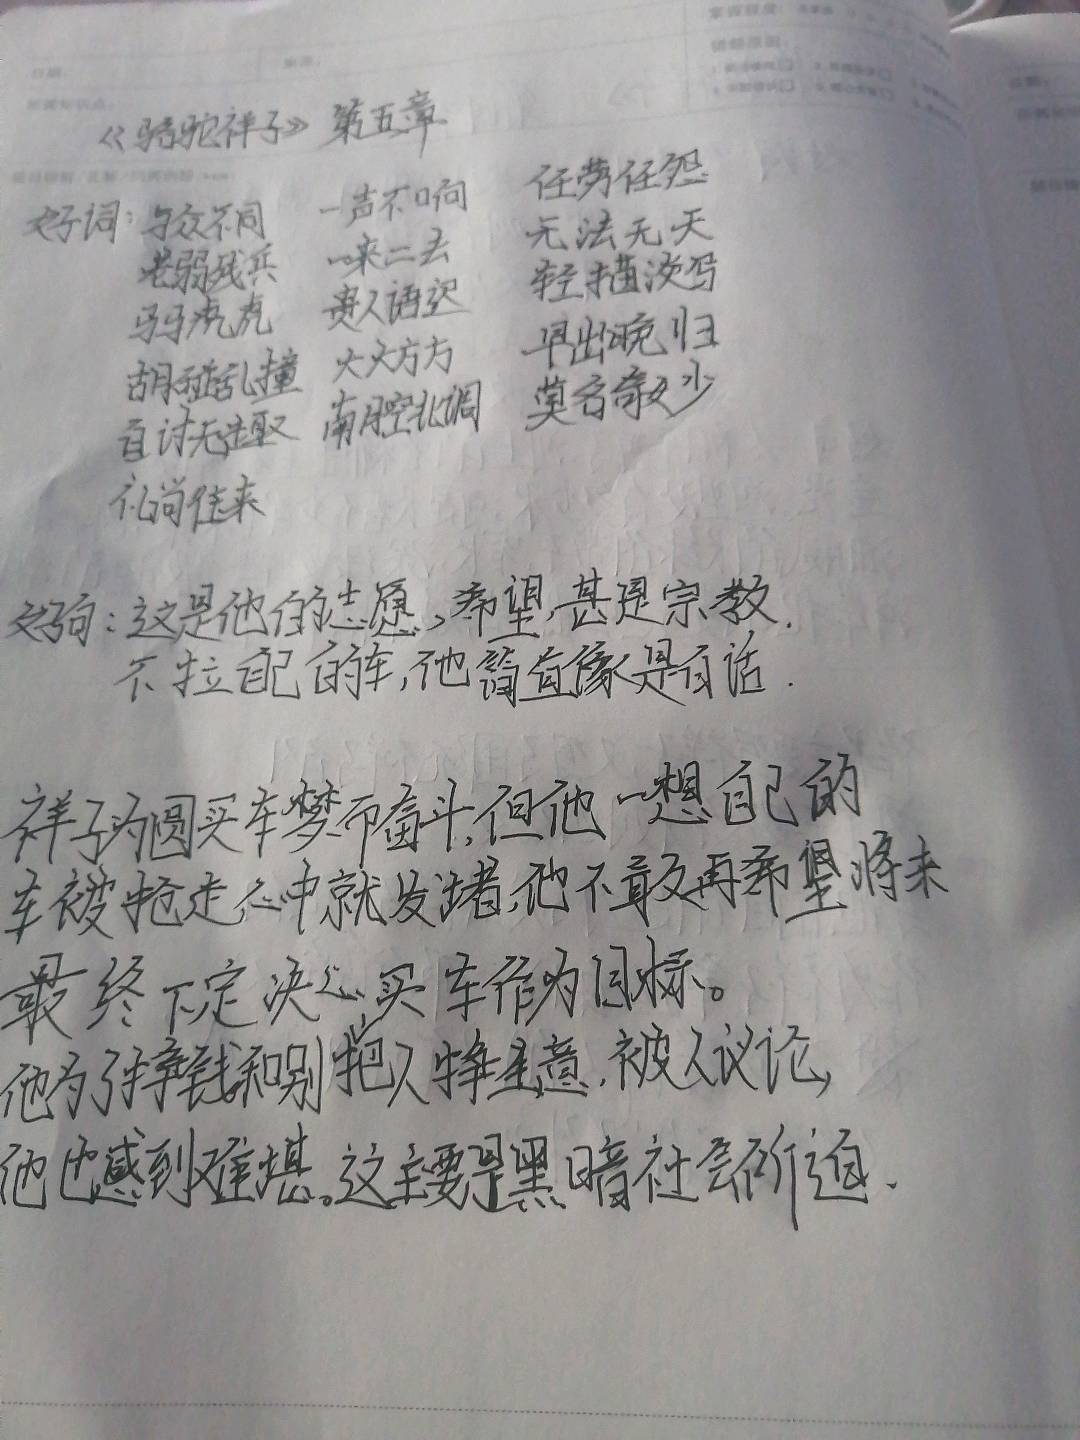 《骆驼祥子》第五章
好词：与众不同 一声不响 任劳任怨
老弱残兵 一来二去 无法无天
马马虎虎 贵人语迟 轻描淡写
胡碰乱撞 大大方方 早出晚归
自讨无趣 南腔北调 莫名奇妙
礼尚往来
好句：这是他的志愿、希望,甚是宗教.
不拉自己的车,他简直像是白话.
祥子为圆买车梦而奋斗,但他一想自己的
车被抢走,心中就发堵,他不敢再希望将来
最终下定决心,把买车作为目标。
他为了挣钱和别人争生意,被人议论,
他也感到难堪。这主要是黑暗社会所迫.